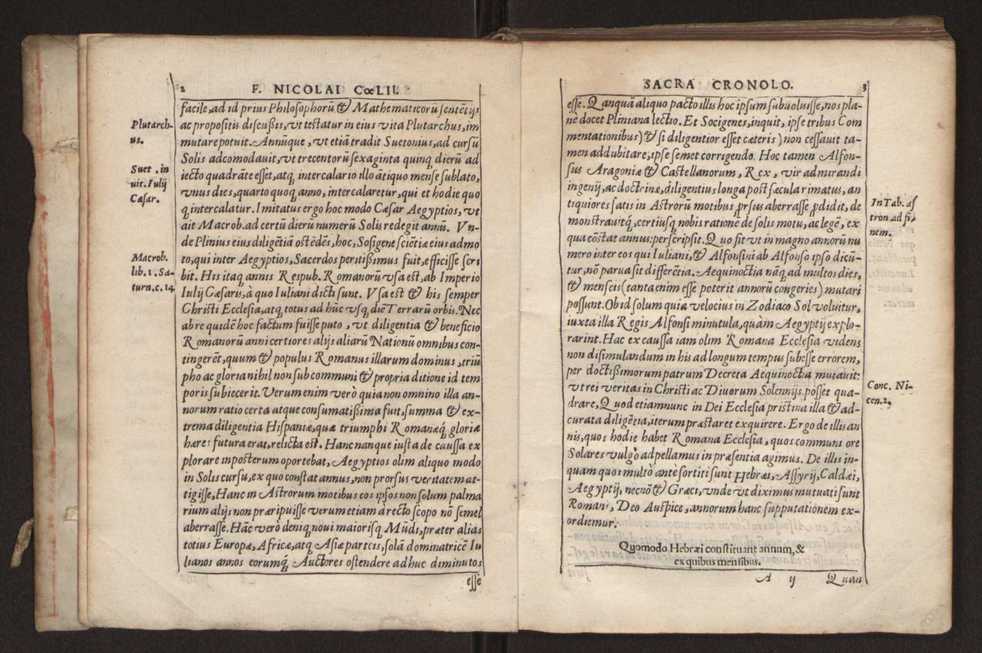 2 F. NICOLAI CœLII.
facile, ad id prius Philosophorū & Mathematicorū sentētijs
ac propositis discussis, vt testatur in eius vita Plutarchus, im
Plutarch-
us.
mutare potuit. Annūque, vt etiā tradit Suetonius, ad cursū
Solis adcomodauit, vt trecentorū sexaginta quinq; dierū ad
Suet. in
vit. Iulij
Cæsar.
iecto quadrāte esset, atq; intercalario illo ātiquo mense sublato,
vnus dies, quarto quoq; anno, intercalaretur, qui et hodie quo
q; intercalatur. Imitatus ergo hoc modo Cæsar Aegyptios, vt
ait Macrob. ad certū dierū numerū Solis redegit annū. Vn-
de Plinius eius diligētiā ostēdēs, hoc, Sosigene sciētiæ eius admo
Macrob.
lib. 1. Sa-
turn. c. 14
to, qui inter Aegyptios, Sacerdos peritissimus fuit, effecisse scri
bit. His itaq; annis Respub. Romanorū vsa est, ab Imperio
Iulij Cæsaris, à quo Iuliani dicti sunt. Vsa est & his semper
Christi Ecclesia, atq; totus ad hūc vsq; diē Terrarū orbis. Nec
ab re quidē hoc factum fuisse puto, vt diligentia & beneficio
Romanorū anni certiores alijs aliarū Nationū omnibus con-
tingerēt, quum & populus Romanus illarum dominus, triū
pho ac gloria nihil non sub communi & propria ditione id tem
poris subiecerit. Verum enim verò quia non omnino illa an-
norum ratio certa atque consumatissima fuit, summa & ex-
trema diligentia Hispaniæ, quæ triumphi Romanæq; gloriæ
hæres futura erat, relicta est. Hanc nanque iusta de caussa ex
plorare inposterum oportebat, Aegyptios olim aliquo modo
in Solis cursu, ex quo constat annus, non prorsus veritatem at-
tigisse, Hanc in Astrorum motibus eos ipsos non solum palma
rium alijs non præripuisse verum etiam à recto scopo nō semel
aberrasse. Hāc verò deniq; noui maiorisq; Mūdi, præter alias
totius Europæ, Africæ, atq; Asiæ partes, solā dominatricē Iu
lianos annos eorumq; Auctores ostendere adhuc diminutos
esse
SACRA CRONOLO. 3
esse. Qanquā aliquo pacto illis hoc ipsum suboluisse, nos pla-
nè docet Pliniana lectio. Et Socigenes, inquit, ipse tribus Com
mentationibus) & si diligentior esset cæteris) non cessauit ta-
men addubitare, ipse semet corrigendo. Hoc tamen Alfon-
sus Aragoniæ & Castellanorum, Rex, vir admirandi
ingenij, ac doctrinæ, diligentius longa post sæcula rimatus, an
tiquiores satis in Astrorū motibus prorsus aberrasse prodidit, de
In Tab. as
tron. ad fi-
nem.
monstrauitq; certiusq; nobis ratione de solis motu, ac lege, ex
qua cōstat annus: perscripsit. Quo fit vt in magno annorū nu
mero inter eos qui Iuliani, & Alfonsini ab Alfonso ipso dicū-
tur, nō parua sit differētia. Aequinoctia nāq; ad multos dies,
& menseis (tanta enim esse poterit annorū congeries) mutari
possunt. Ob id solum quia velocius in Zodiaco Sol voluitur,
iuxta illa Regis Alfonsi minutula, quàm Aegyptij explo-
rarint. Hac ex caussa iam olim Romana Ecclesia videns
non disimulandum in his ad longum tempus subesse errorem,
per doctissimorum patrum Decreta Aequinoctia mutauit:
Conc. Ni-
cen. 2,
vt rei veritas in Christi ac Diuorum Solennijs posset qua-
drare, Quod etiamnunc in Dei Ecclesia pristina illa & ad-
curata diligētia, iterum præstaret exquirere. Ergo de illis an
nis, quos hodie habet Romana Ecclesia, quos communi ore
Solares vulgò adpellamus in præsentia agimus. De illis in-
quam quos multò ante sortiti sunt Hebræi, Assyrij, Caldæi,
Aegyptij, necnō & Græci, vnde vt diximus mutuati sunt
Romani, Deo Auspice, annorum hanc supputationem ex-
ordiemur.
Quomodo Hebræi constituant annum, &
ex quibus mensibus.
A ij